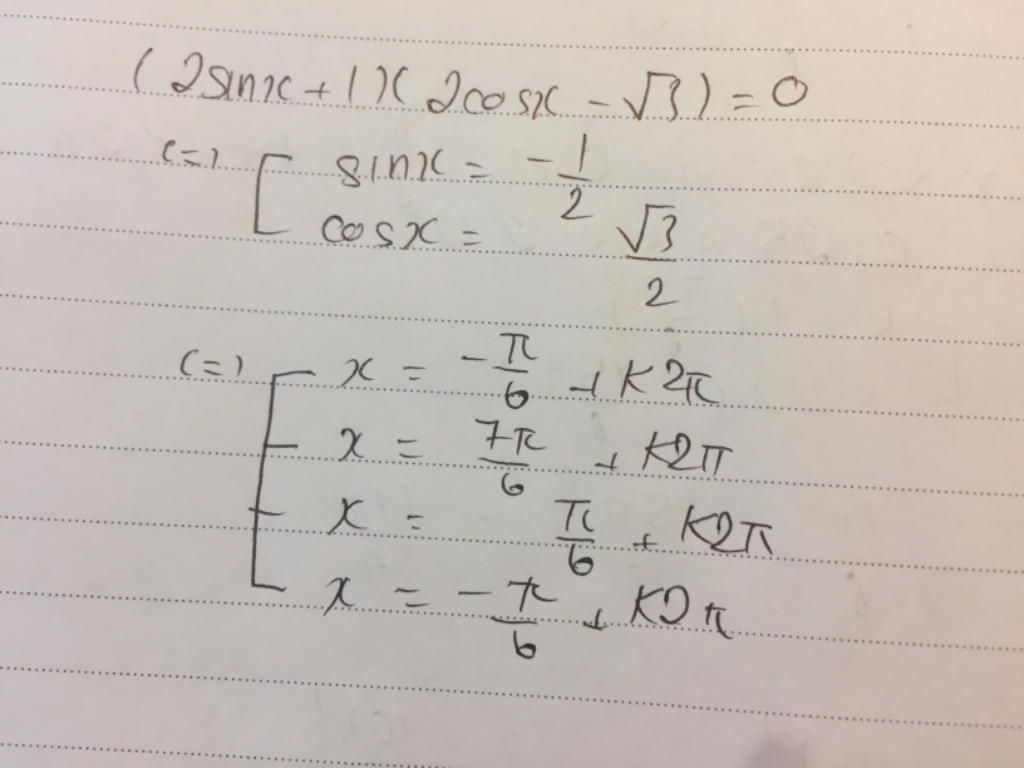 (2sinx+1)(2cosx-√3)=0
<=> [ sinx = -1/2
cosx = √3/2
<=> [ x = -π/6 + K2π
x = 7π/6 + K2π
x = π/6 + K2π
x = -π/6 + K2π